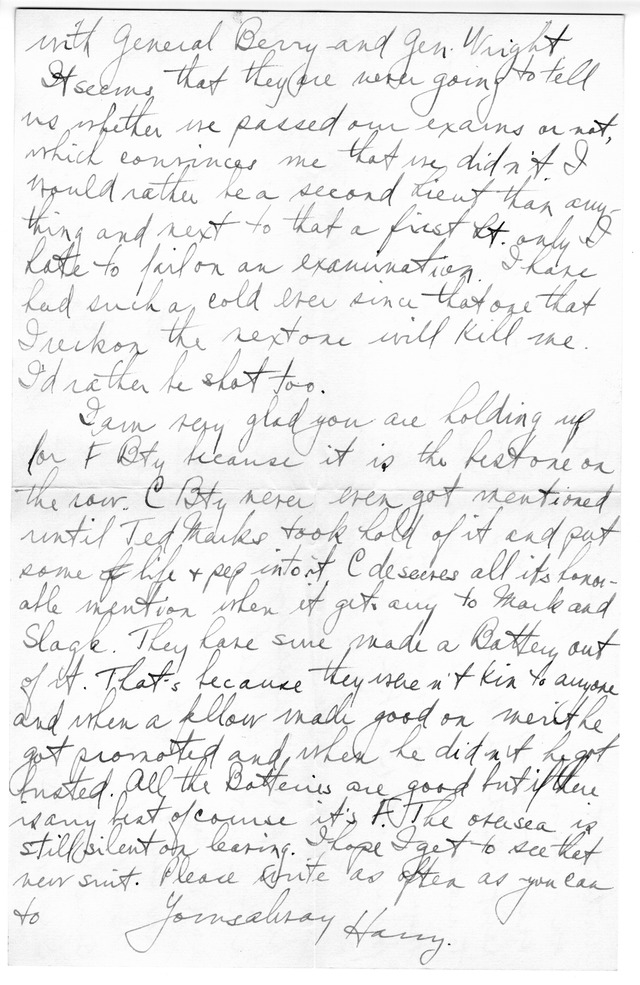 with General Berry and Gen. Wright
It seems that they are never going to tell
us whether we passed our exams or not,
which convinces me that we didn't. I
would rather be a second Lieut than any-
thing and next to that a first Lt. only I
hate to fail on an examination. I have
had such a cold ever since that one that
I reckon the next one will kill me.
I'd rather be shot too.
I am very glad you are holding up
for F Bty because it is the best one on
the row. C Bty never even got mentioned
until Ted Marks took hold of it and put
some of life + pep into it C deserves all its honor-
able mention when it gets any to Mark and
Slagle. They have sure made a Battery out
of it. That's because they weren't kin to anyone
and when a fellow made good on merit he
got promoted and when he didn't he got
busted. All the Batteries are good but if there
is any best of course it's F. The oversea is
still silent on leaving. I hope I get to see that
new suit. Please write as often as you can
to Yours always Harry.